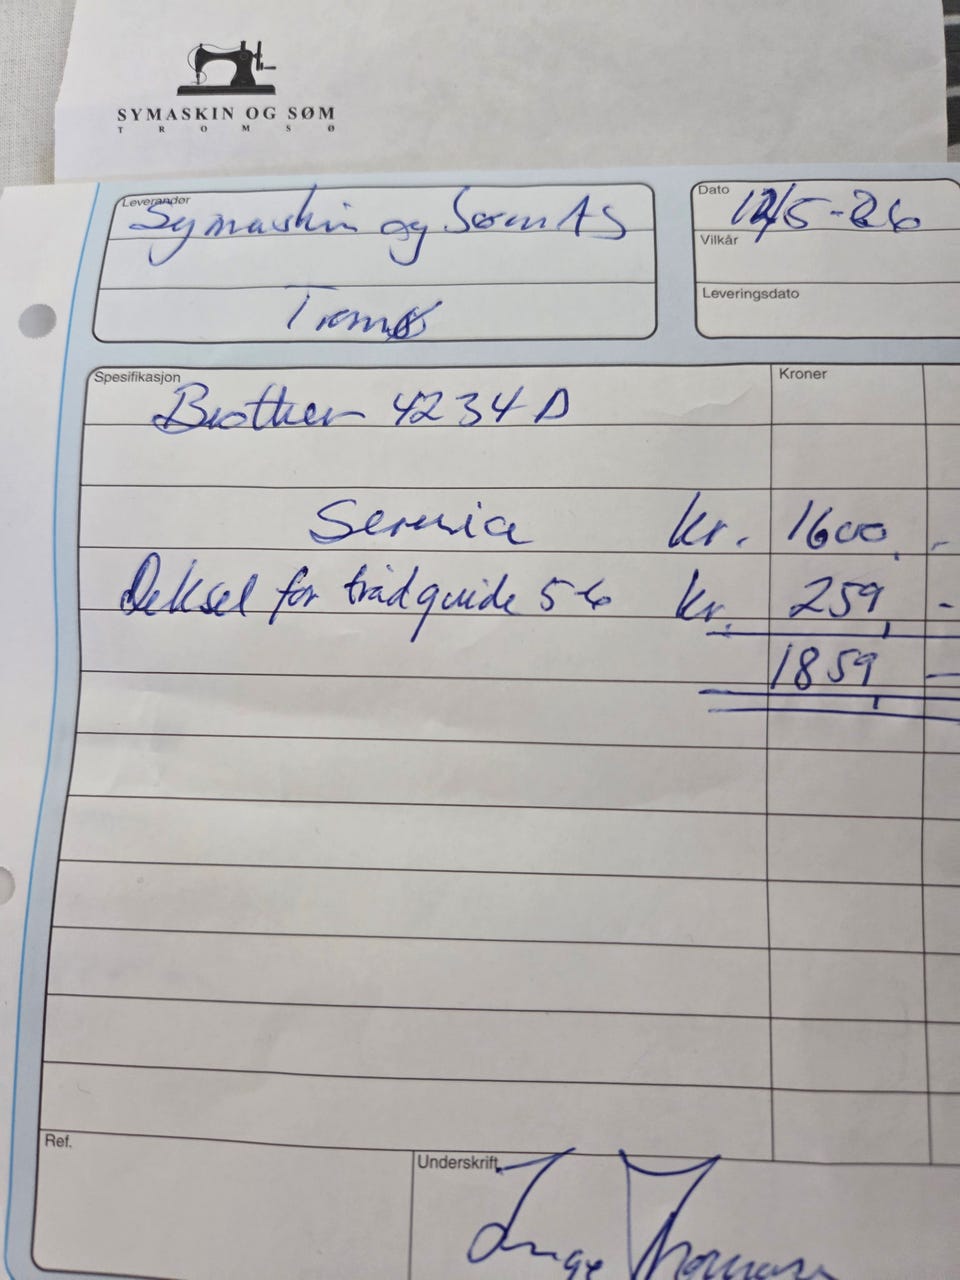 SYMASKIN OG SØM
TROMSØ
Leverandør
Symaskin og Søm AS
Tromsø
Dato
12/5-26
Vilkår
Leveringsdato
Spesifikasjon
Kroner
Brother 4234D
Service kr. 1600,-
Deksel for trådguide 56 kr. 259,-
1859,-
Ref.
Underskrift
Inge